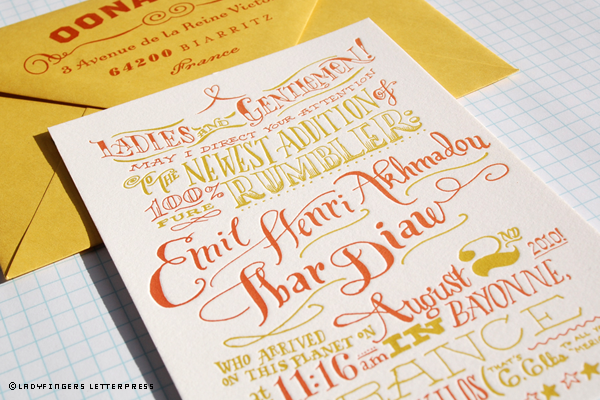 OONA
3 Avenue de la Reine Victo
64200 BIARRITZ
France
LADIES AND GENTLEMEN!
MAY I DIRECT YOUR ATTENTION
TO THE NEWEST ADDITION of
100% PURE RUMBLER:
Emil Henri Akhmadou
Ibar Diaw
August 2ND 2010!
WHO ARRIVED ON THIS PLANET ON
at 11:16 am IN BAYONNE,
FRANCE
©LADYFINGERS LETTERPRESS